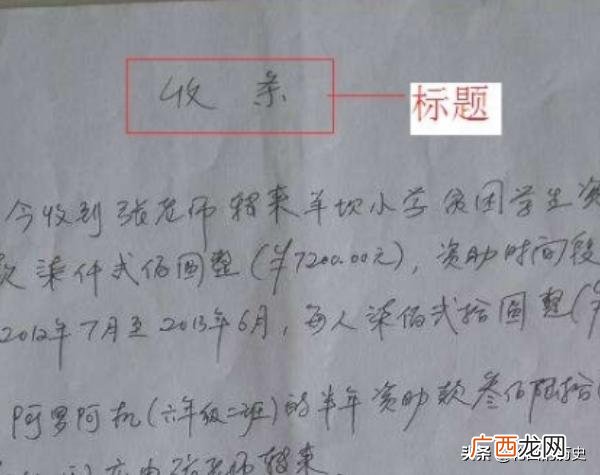 收条
标题
今收到张老师转来羊坎小学贫困学生资
款柒仟弍佰圆整(¥7200.00元),资助时间段
2012年7月至2013年6月,每人柒佰弍拾圆整(¥
阿罗阿机(六年级二班)的半年资助款叁佰陆拾
张老师转来.
头条
历史
广西龙网